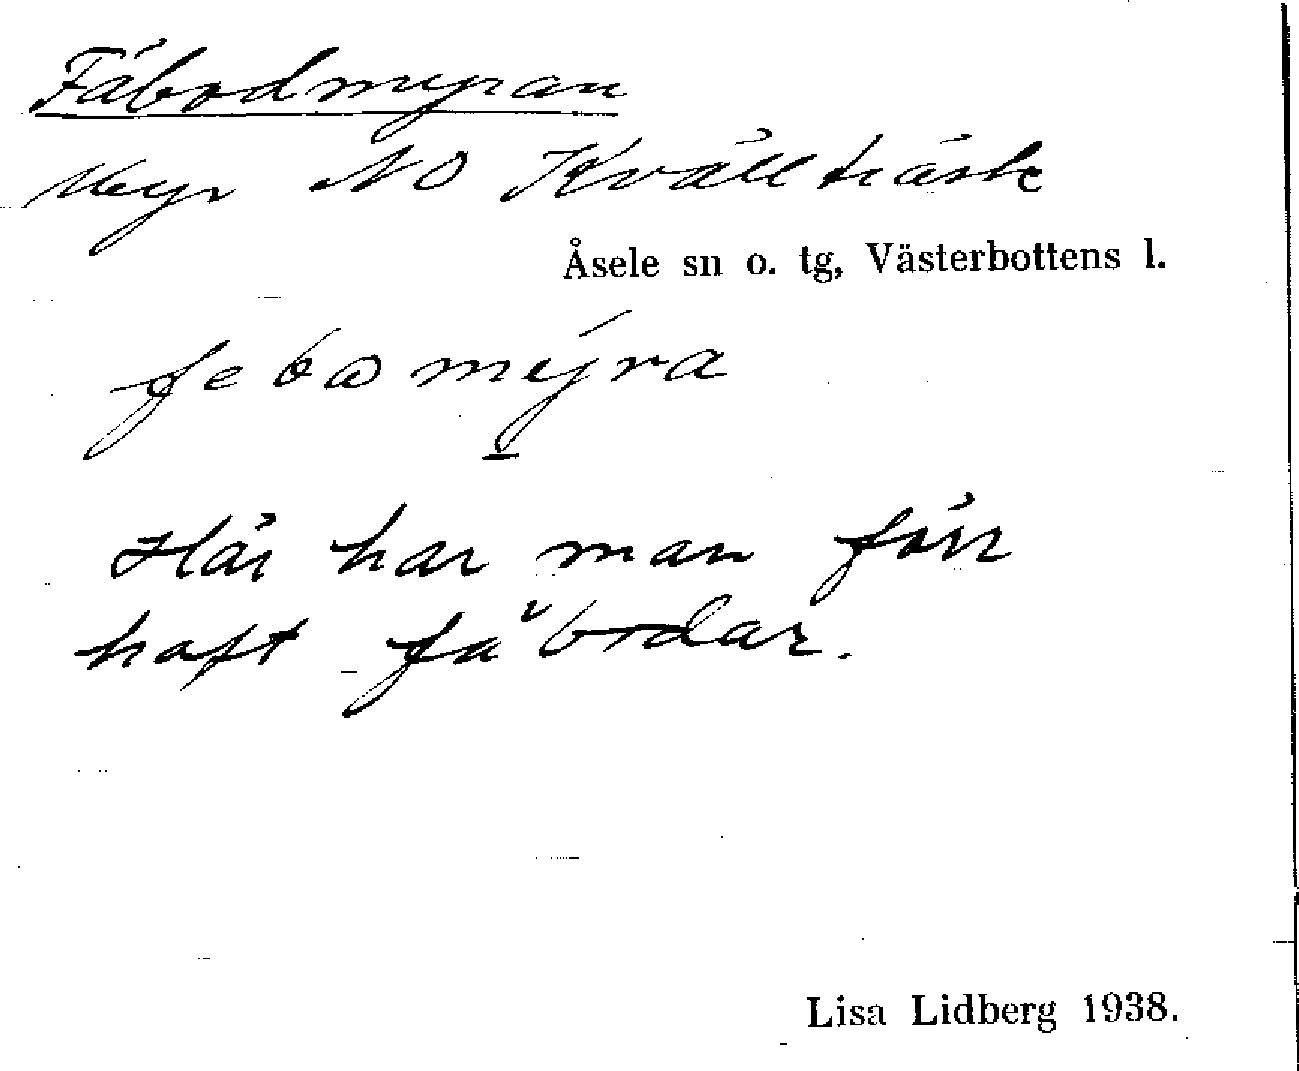 Fäbodmyran
Myr NO Kvällträsk
Åsele sn o. tg, Västerbottens l.
febωmýra
Här har man förr
haft fäbodar.
Lisa Lidberg 1938.